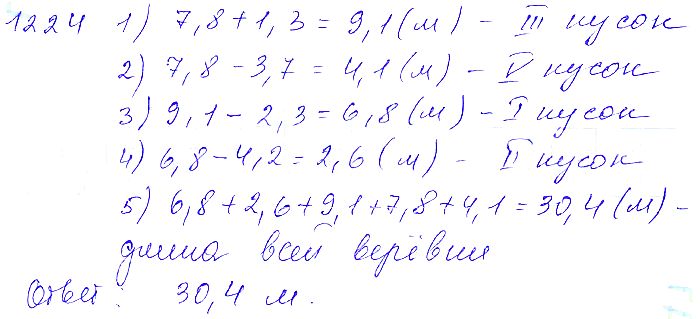 1224 1) 7,8 + 1,3 = 9,1 (м) - III кусок
2) 7,8 - 3,7 = 4,1 (м) - V кусок
3) 9,1 - 2,3 = 6,8 (м) - I кусок
4) 6,8 - 4,2 = 2,6 (м) - II кусок
5) 6,8 + 2,6 + 9,1 + 7,8 + 4,1 = 30,4 (м) -
длина всей верёвки
Ответ: 30,4 м.